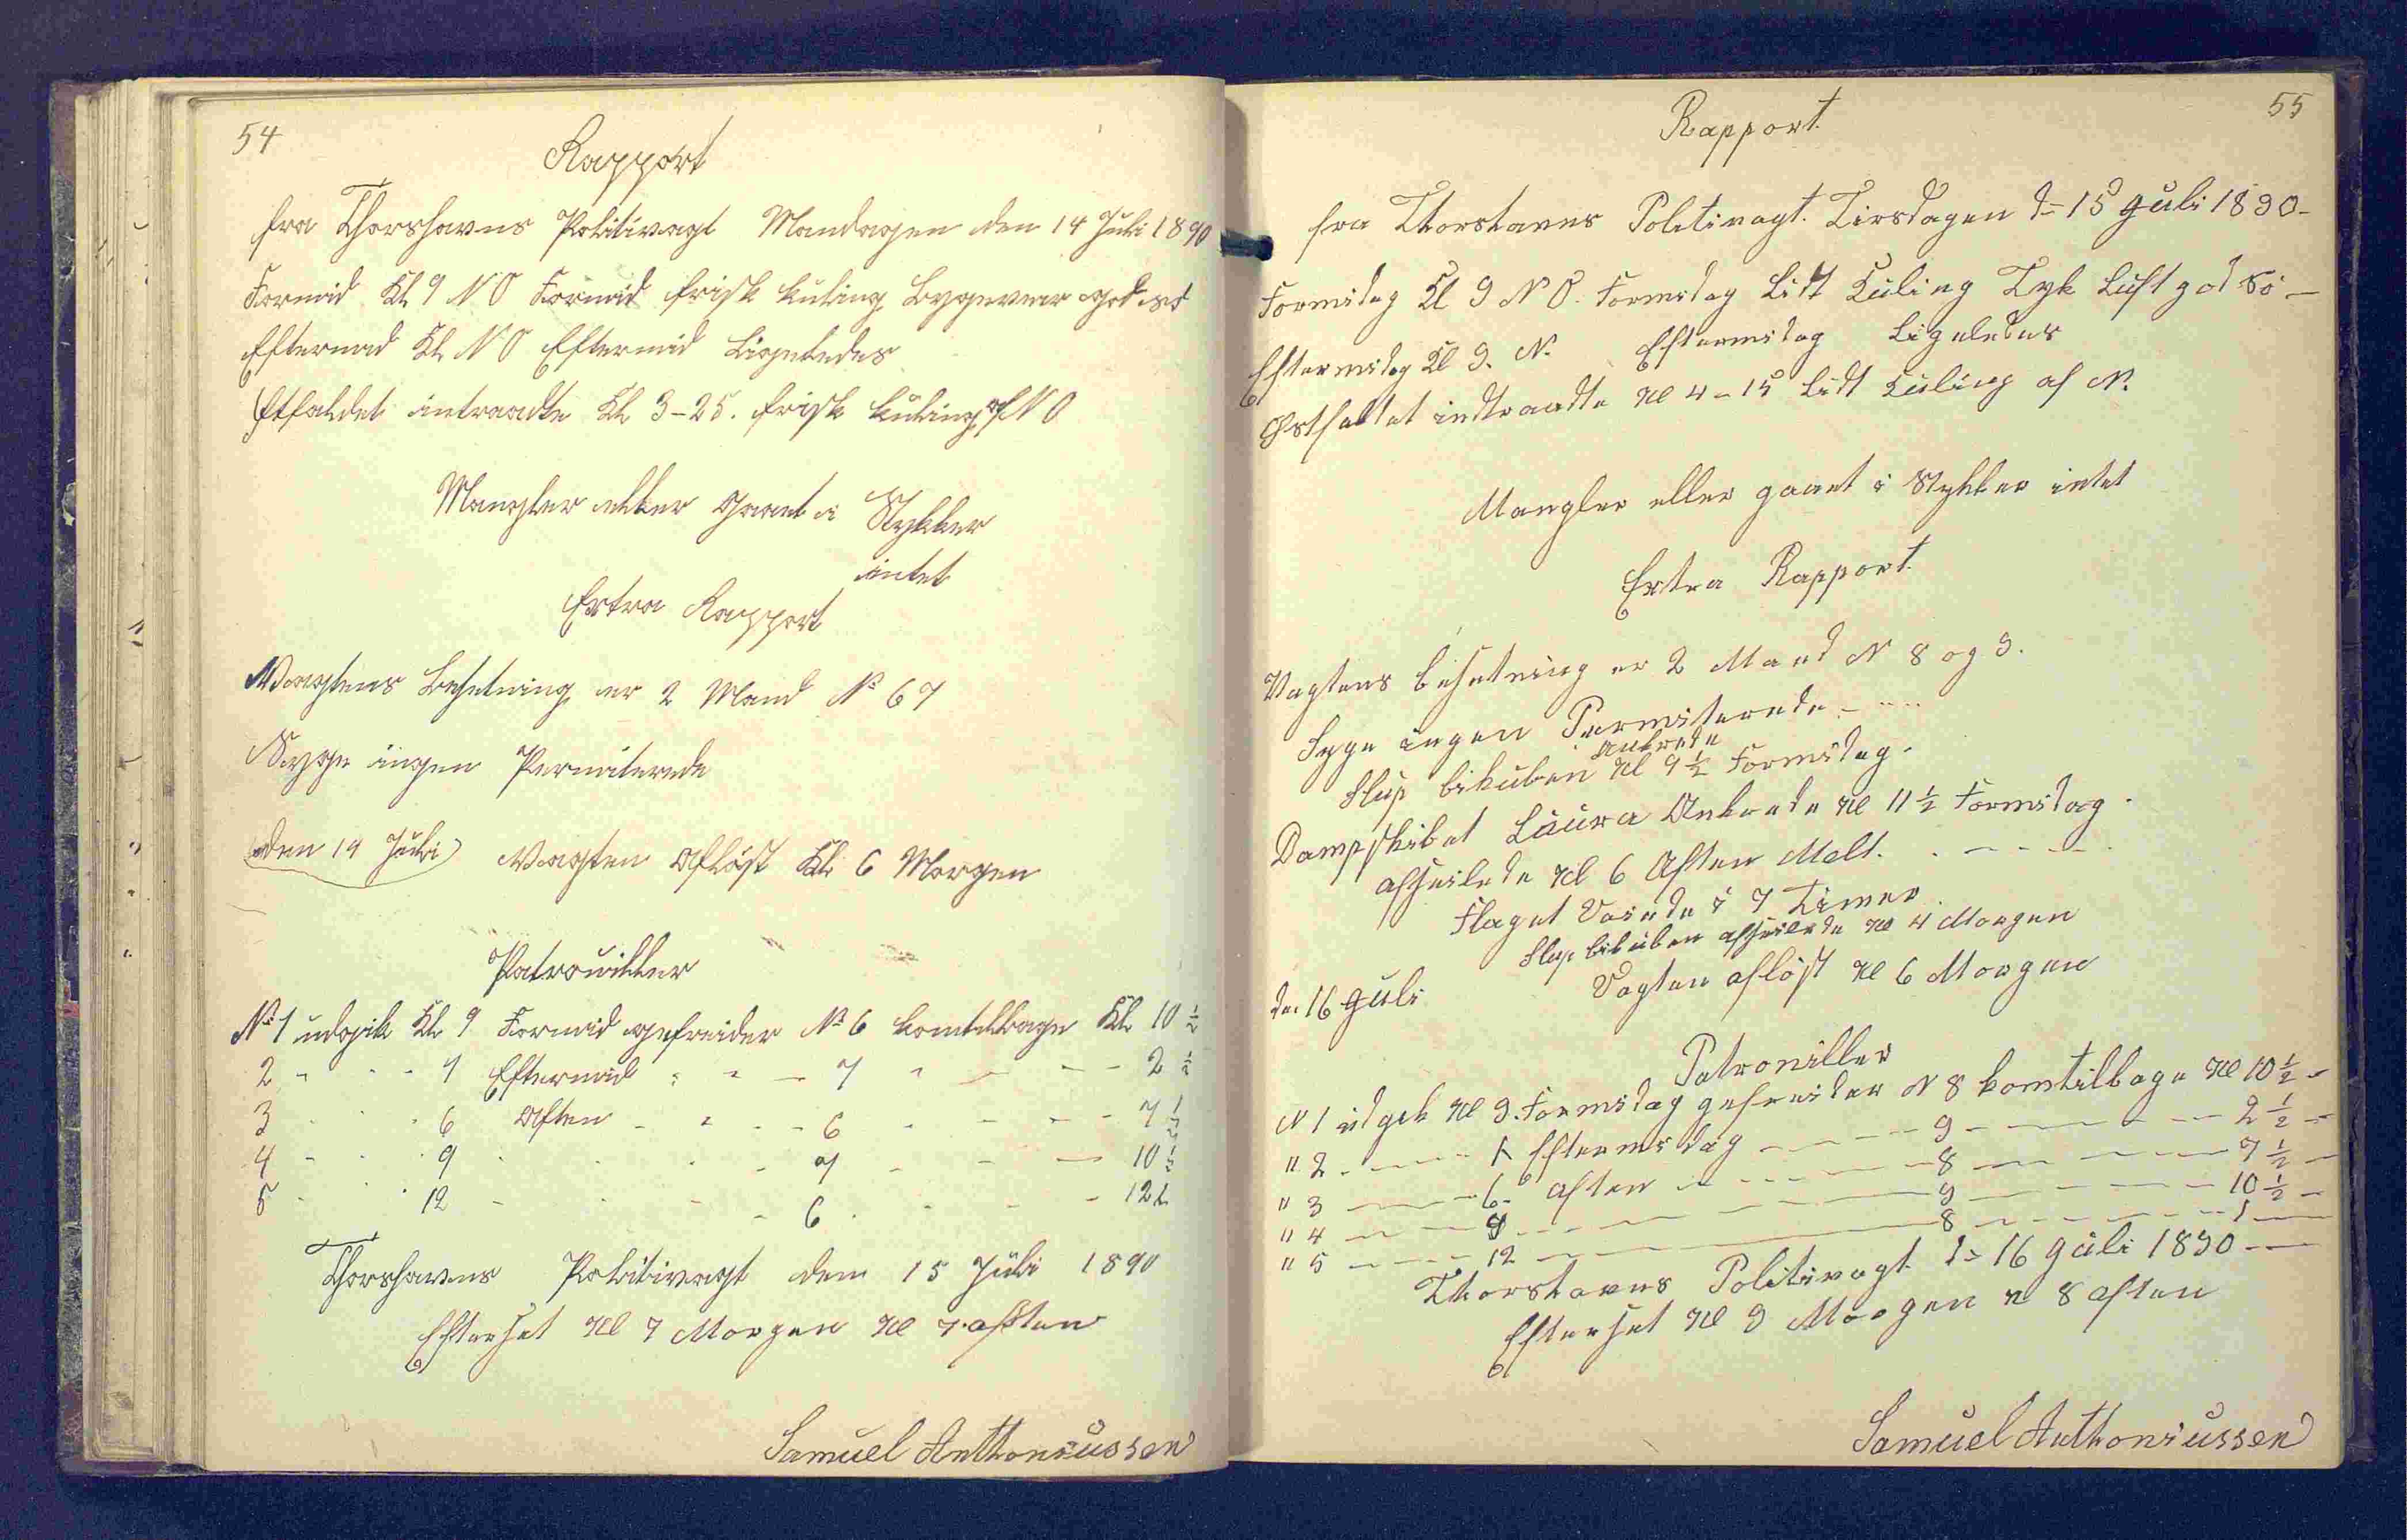 54
Rapport
fra Thorshavns Politivagt Mandagen den 14 Juli 1890
Formid Kl 9 N O Formid frisk kuling Bygevær god
Eftermid Kl N O Eftermid Ligeledes
Østfaldet intraadte Kl 3-25. frisk kuling af N O
Mangler eller gaaet i Stykker
intet
Extra Rapport
Vagtens Besetning er 2 Mand No 6 7
Syge ingen Permiterede
den 14 Juli Vagten Afløst Kl. 6 Morgen
Patrouiller
No 1 udgik Kl 9 Formid gefreider No 6 komtilbage Kl 10 ½
2 - - - 1 Eftermid - - - 7 - - - - 2 ½
3 - - - 6 Aften - - - 6 - - - - 7 ½
4 - - - 9 - - - - 7 - - - 10 ½
5 - - - 12 - - - - 6 - - - - 12
Thorshavns Politivagt den 15 Juli 1890
Efterset Kl 7 Morgen Kl 7 aften
Samuel Anthoniussen
55
Rapport.
fra Thorshavns Politivagt. Tirsdagen d= 15 Juli 1890-
Formidag Kl 9 N O. Formidag Lidt Kuling Tyk Luft god Sö -
Eftermidag Kl 9. N. Eftermidag Ligeledes
Østfaldet indtraadte Kl 4-15 Lidt Kuling af N.
Mangler eller gaaet i Stykker intet
Extra Rapport.
Vagtens besetning er 2 Mand N 8 og 9.
Syge ingen Permiterede - - -
Ankrede
Slup bikuben Kl 9 ½ Formidag.
Dampskibet Laura Ankrede Kl 11 ½ Formidag.
afseilede Kl 6 Aften - - - -
Flaget Vaiede i 7 Timer
Slup bikuben afseilede Kl 4 Morgen
den 16 Juli Vagten afløst Kl 6 Morgen
Patrouiller
N 1 udgik Kl 9. Formidag gefreider N 8 komtilbage Kl 10 ½ -
" 2 - - - - 1 Eftermidag - - - - 9 - - - - 2 ½ -
" 3 - - - - 6 - aften - - - - 8 - - - - 7 ½ -
" 4 - - - - 9 - - - - 9 - - - - 10 ½ -
" 5 - - - - 12 - - - - 8 - - - - 1 -
Thorshavns Politivagt d= 16 Juli 1890 -
Efterset Kl 9 Morgen 8 aften
Samuel Anthoniussen